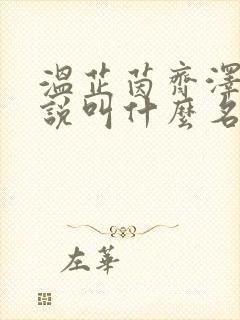 溫芷茵齊澤
說叫什麼名
左華